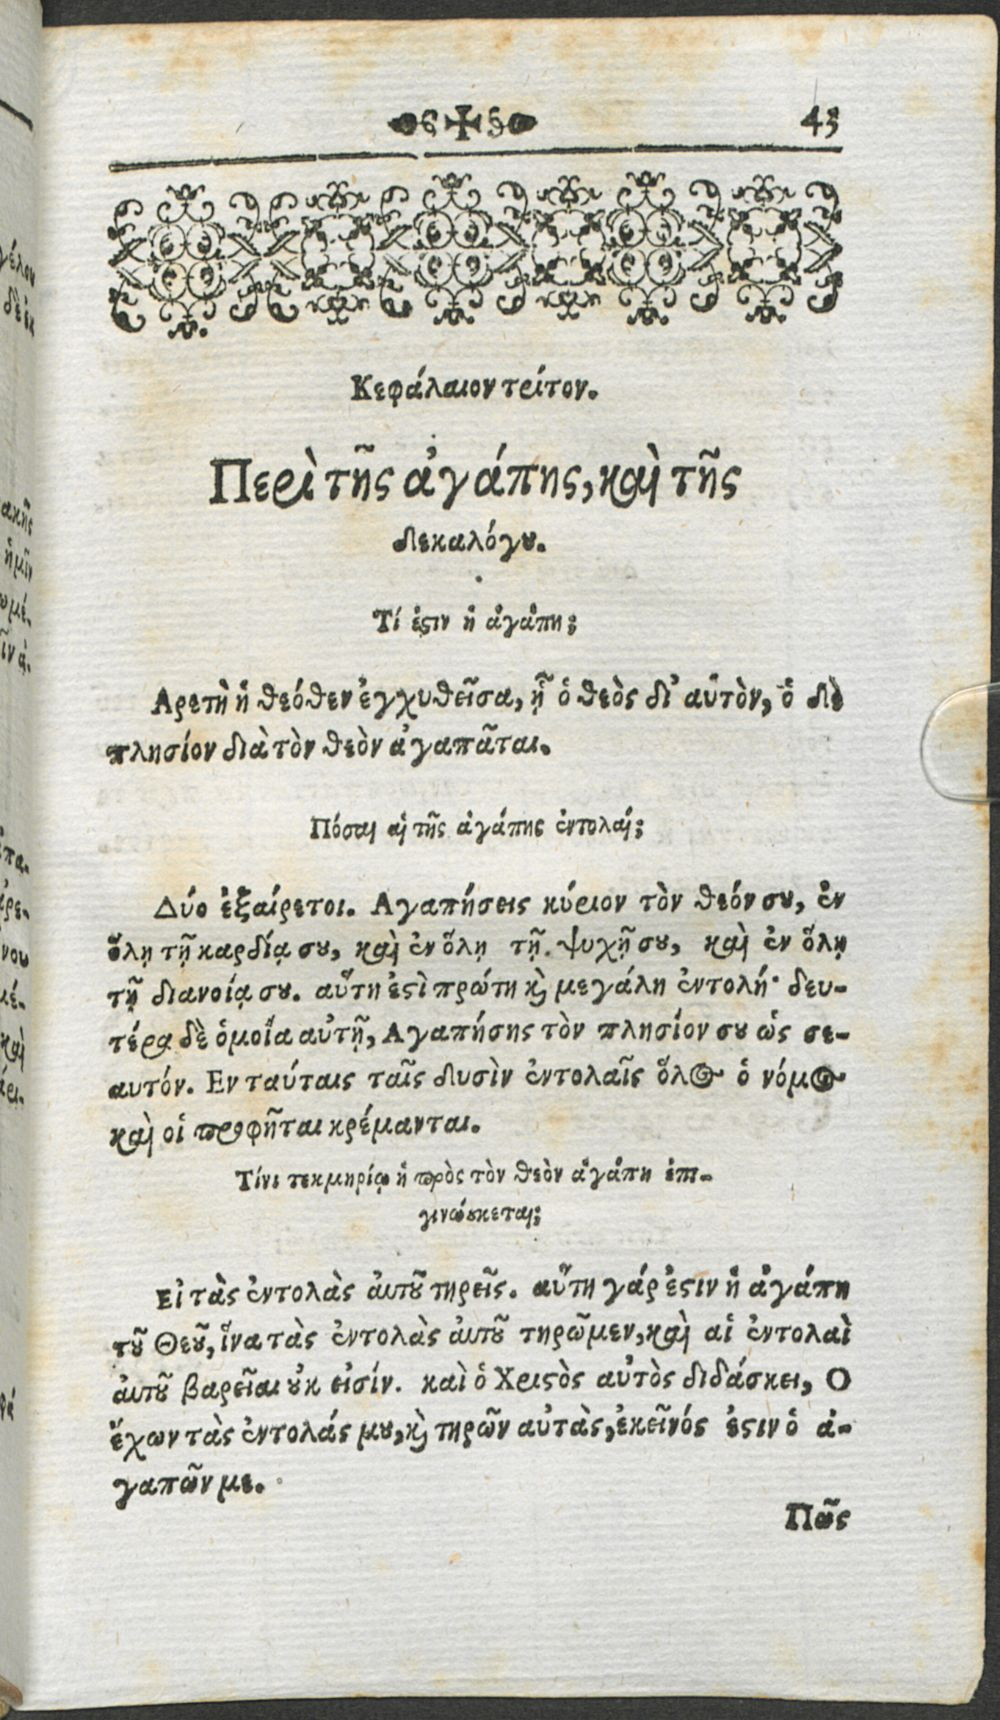 43
Κεφάλαιον τρίτον.
Περὶ τῆς ἀγάπης, καὶ τῆς
δεκαλόγου.
Τί ἐστιν ἡ ἀγάπη;
Αρετὴ ἡ θεόθεν ἐγχυθεῖσα, ᾗ ὁ θεὸς δι' αὑτὸν, ὁ δὲ
πλησίον διὰ τὸν θεὸν ἀγαπᾶται.
Πόσαι αἱ τῆς ἀγάπης ἐντολαί;
Δύο ἐξαίρετοι. Αγαπήσεις κύριον τὸν θεόν σου, ἐν
ὅλῃ τῇ καρδίᾳ σου, καὶ ἐν ὅλῃ τῇ ψυχῇ σου, καὶ ἐν ὅλῃ
τῇ διανοίᾳ σου. αὕτη ἐστὶ πρώτη καὶ μεγάλη ἐντολή· δευ-
τέρα δὲ ὁμοῖα αὐτῇ, Αγαπήσης τὸν πλησίον σου ὡς σε-
αυτόν. Εν ταύταις ταῖς δυσὶν ἐντολαῖς ὅλος ὁ νόμος
καὶ οἱ προφῆται κρέμανται.
Τίνι τεκμηρίῳ ἡ πρὸς τὸν θεὸν ἀγάπη ἐπι-
γινώσκεται;
Εἰ τὰς ἐντολὰς αὐτοῦ τηρεῖς. αὕτη γάρ ἐστιν ἡ ἀγάπη
τοῦ Θεοῦ, ἵνα τὰς ἐντολὰς αὐτοῦ τηρῶμεν, καὶ αἱ ἐντολαὶ
αὐτοῦ βαρεῖαι οὐκ εἰσίν. καὶ ὁ Χριστὸς αὐτὸς διδάσκει, Ο
ἔχων τὰς ἐντολάς μου, καὶ τηρῶν αὐτὰς, ἐκεῖνός ἐστιν ὁ ἀ-
γαπῶν με.
Πῶς